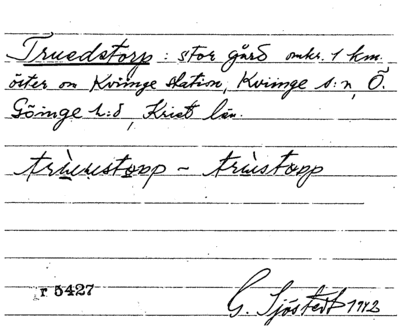 Truedstorp : stor gård omkr. 1 km.
öster om Kviinge station, Kviinge s:n, Ö.
Göinge h:d, Krist. län.
trùustorp ~ trùstorp
r 5427
G. Sjöstedt 1942